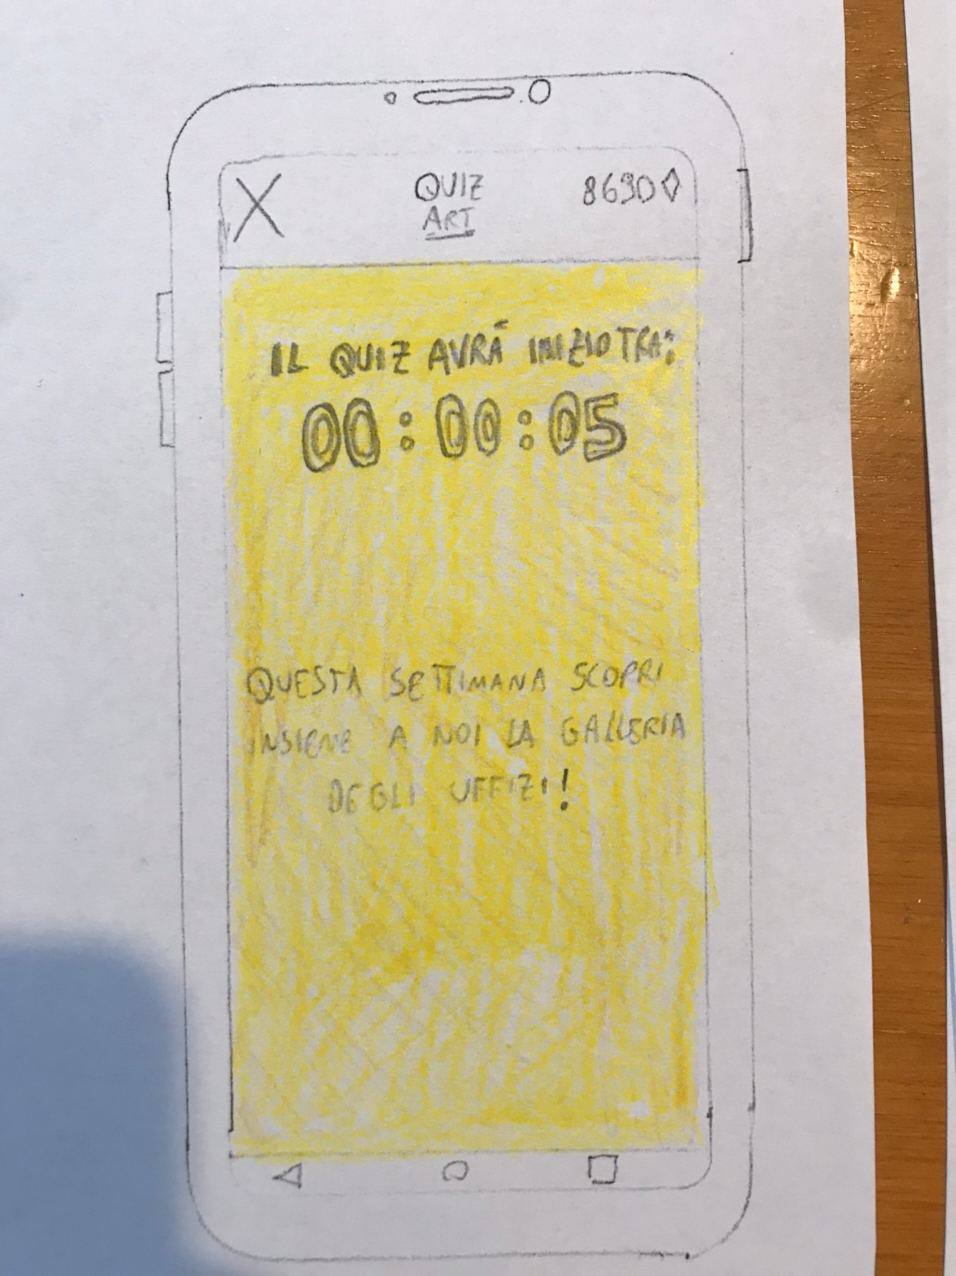 X
QUIZ
ART
8690◊
IL QUIZ AVRÁ INIZIO TRA:
00:00:05
QUESTA SETTIMANA SCOPRI
INSIEME A NOI LA GALLERIA
DEGLI UFFIZI!